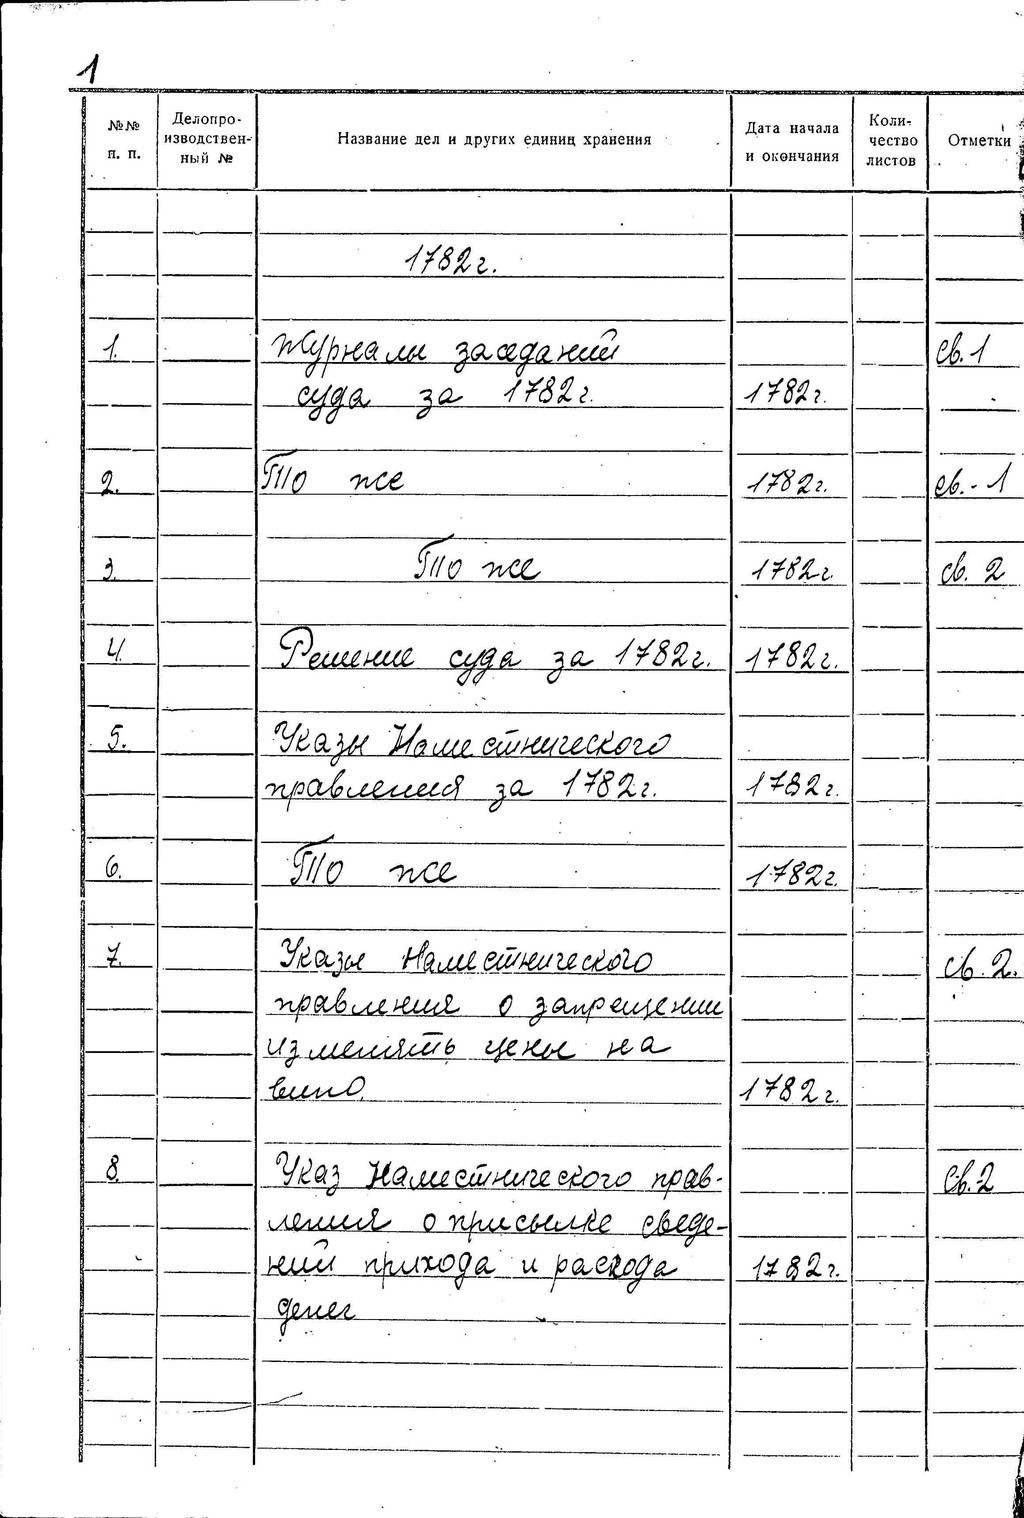 1
№№ п. п.
Делопро-
изводствен-
ный №
Название дел и других единиц хранения
Дата начала
и окончания
Коли-
чество
листов
Отметки
1782г.
1. Журналы заседаний св. 1
суда за 1782г. 1782г.
2. То же 1782г. св. - 1
3. То же 1782г. св. 2
4. Решение суда за 1782г. 1782г.
5. Указы Наместнического
правления за 1782г. 1782г.
6. То же 1782г.
7. Указы Наместнического св. 2.
правления о запрещении
изменять цены на
вино. 1782г.
8. Указ Наместнического прав- Св.-2
ления о присылке сведе-
ний прихода и расхода 1782г.
денег